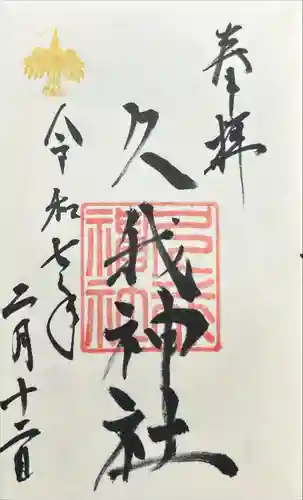 奉拝
久我神社
令和七年
二月十二日